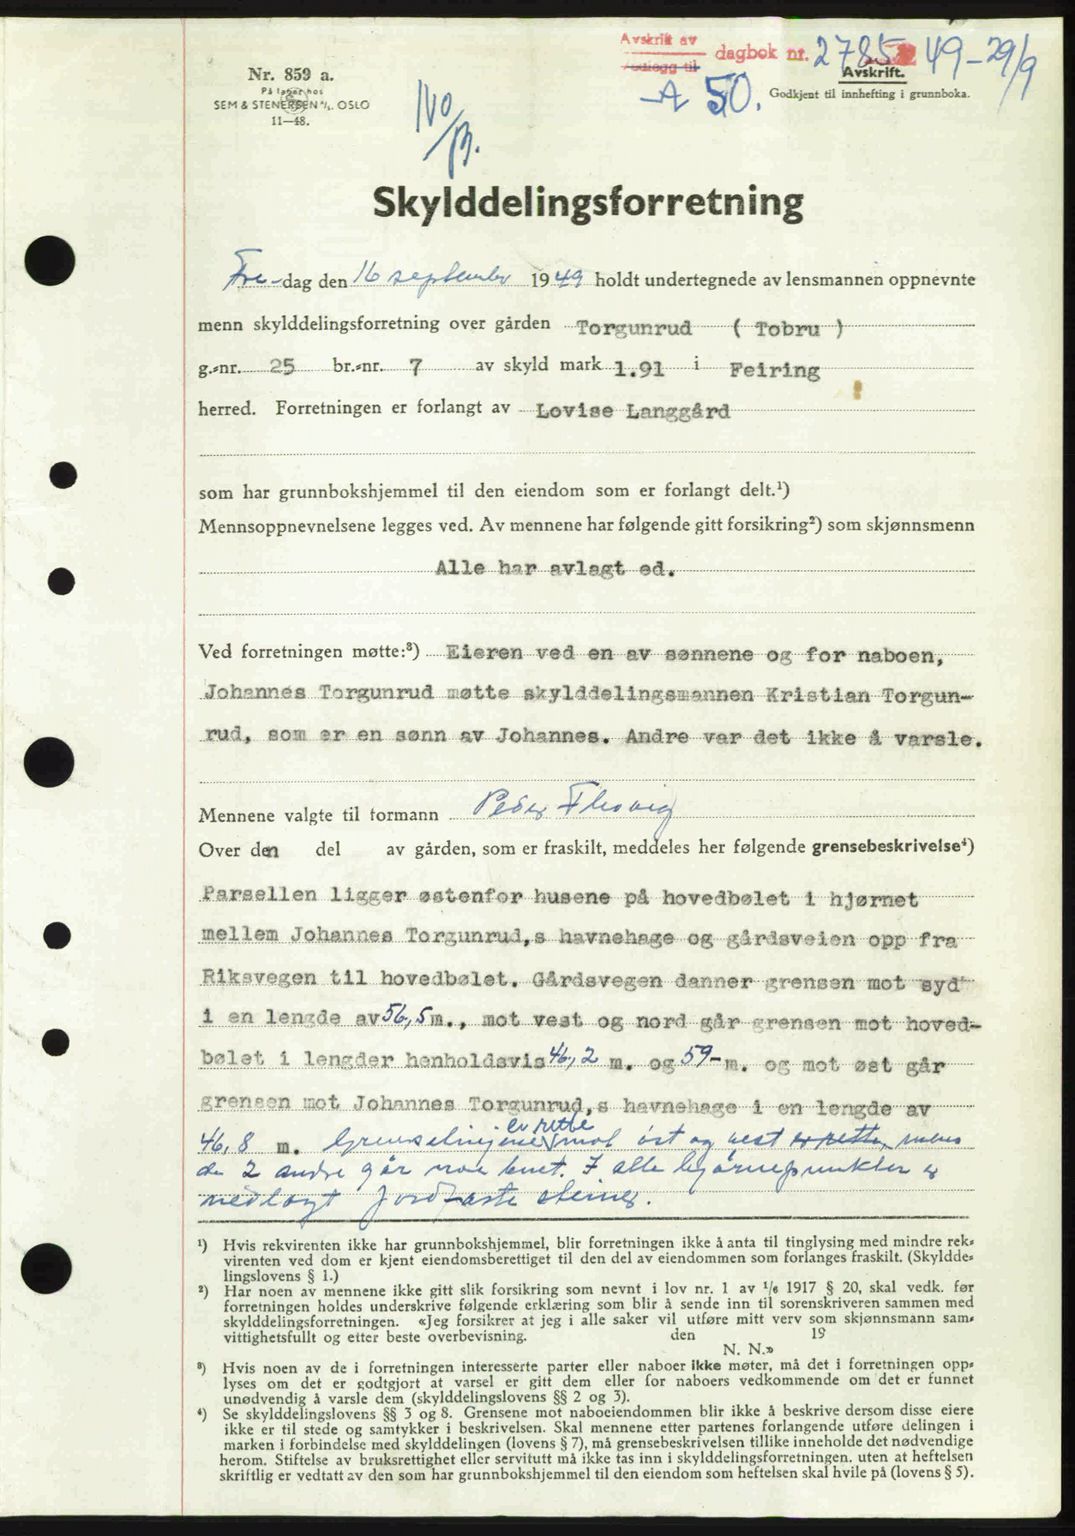 Avskrift av
vedlegg til dagbok nr. 2785 49-29/9
A 50.
Avskrift.
Godkjent til innhefting i grunnboka.
Nr. 859 a.
På lager hos
SEM & STENERSEN A/S. OSLO
11—48.
110/
Skylddelingsforretning
Fre-dag den 16 september 1949 holdt undertegnede av lensmannen oppnevnte
menn skylddelingsforretning over gården Torgunrud ( Tobru )
g.-nr. 25 br.-nr. 7 av skyld mark 1.91 i Feiring
herred. Forretningen er forlangt av Lovise Langgård
som har grunnbokshjemmel til den eiendom som er forlangt delt.¹)
Mennsoppnevnelsene legges ved. Av mennene har følgende gitt forsikring²) som skjønnsmenn
Alle har avlagt ed.
Ved forretningen møtte:³) Eieren ved en av sønnene og for naboen,
Johannes Torgunrud møtte skylddelingsmannen Kristian Torgun-
rud, som er en sønn av Johannes. Andre var det ikke å varsle.
Mennene valgte til formann Peder
Over den del av gården, som er fraskilt, meddeles her følgende grensebeskrivelse⁴)
Parsellen ligger østenfor husene på hovedbølet i hjørnet
mellem Johannes Torgunrud,s havnehage og gårdsveien opp fra
Riksvegen til hovedbølet. Gårdsvegen danner grensen mot syd
i en lengde av 56,5 m., mot vest og nord går grensen mot hoved-
bølet i lengder henholdsvis 46,2 m. og 59- m. og mot øst går
grensen mot Johannes Torgunrud,s havnehage i en lengde av
er rette
46,8 m. Grenselinjene mot øst og vest er rette, mens
de 2 andre går noe buet. I alle hjørnepunkter er
nedlagt jordfaste steiner.
¹) Hvis rekvirenten ikke har grunnbokshjemmel, blir forretningen ikke å anta til tinglysing med mindre rek-
virenten ved dom er kjent eiendomsberettiget til den del av eiendommen som forlanges fraskilt. (Skyldde-
lingslovens § 1.)
²) Har noen av mennene ikke gitt slik forsikring som nevnt i lov nr. 1 av ¹/₆ 1917 § 20, skal vedk. før
forretningen holdes underskrive følgende erklæring som blir å sende inn til sorenskriveren sammen med
skylddelingsforretningen. «Jeg forsikrer at jeg i alle saker vil utføre mitt verv som skjønnsmann sam-
vittighetsfullt og etter beste overbevisning. den 19
N. N.»
³) Hvis noen av de i forretningen interesserte parter eller naboer ikke møter, må det i forretningen opp-
lyses om det er godtgjort at varsel er gitt dem eller for naboers vedkommende om det er funnet
unødvendig å varsle dem (skylddelingslovens §§ 2 og 3).
⁴) Se skylddelingslovens §§ 3 og 8. Grensene mot naboeiendommen blir ikke å beskrive dersom disse eiere
ikke er til stede og samtykker i beskrivelsen. Skal mennene etter partenes forlangende utføre delingen i
marken i forbindelse med skylddelingen (lovens § 7), må grensebeskrivelsen tillike inneholde det nødvendige
herom. Stiftelse av bruksrettighet eller servitutt må ikke tas inn i skylddelingsforretningen, uten at heftelsen
skriftlig er vedtatt av den som har grunnbokshjemmel til den eiendom som heftelsen skal hvile på (lovens § 5).